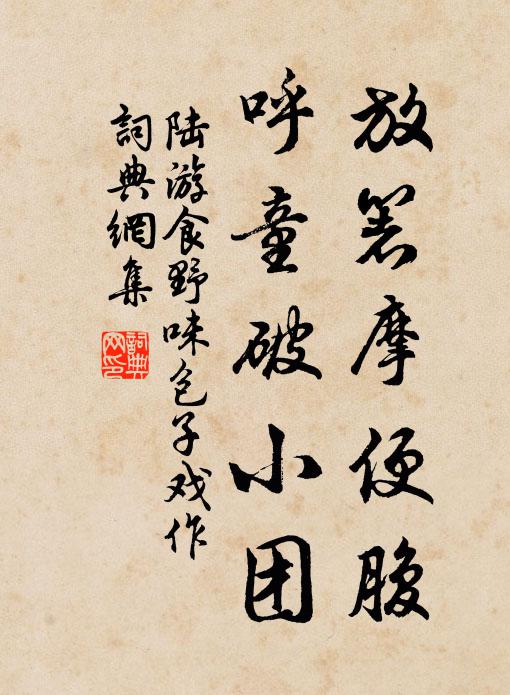 放箸摩便腹
呼童破小团
陆游食野味包子戏作
詞典網集
詞典网印